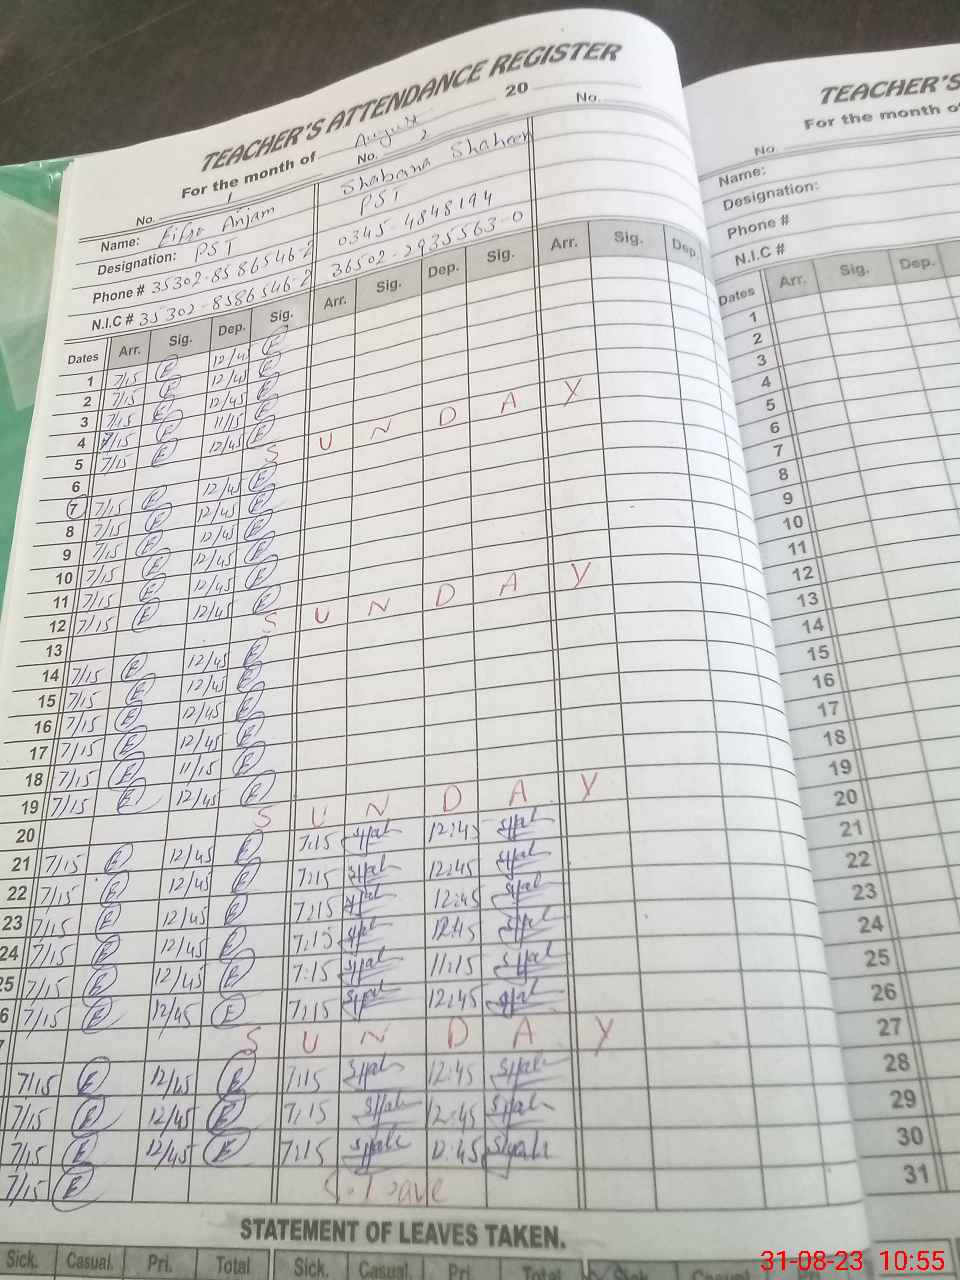 TEACHER'S ATTENDANCE REGISTER
For the month of August 20
No. 1 No. 2 No.
Name: Anjam Shabana Shaheen
Designation: PST PST
Phone # 35302-8586546-2 0345-4848194
N.I.C # 35302-8586546-2 36502-2935563-0
Dates Arr. Sig. Dep. Sig. Arr. Sig. Dep. Sig. Arr. Sig. Dep.
1 7/15 E 12/45 E
2 7/15 E 12/45 E
3 7/15 E 12/45 E
4 7/15 E 11/15 E
5 7/15 E 12/45 E
6 S U N D A Y
7 7/15 E 12/45 E
8 7/15 E 12/45 E
9 7/15 E 12/45 E
10 7/15 E 12/45 E
11 7/15 E 12/45 E
12 7/15 E 12/45 E
13 S U N D A Y
14 7/15 E 12/45 E
15 7/15 E 12/45 E
16 7/15 E 12/45 E
17 7/15 E 12/45 E
18 7/15 E 11/15 E
19 7/15 E 12/45 E
20 S U N D A Y
21 7/15 E 12/45 E 7:15 12:45
22 7/15 E 12/45 E 7:15 12:45
23 7/15 E 12/45 E 7:15 12:45
24 7/15 E 12/45 E 7:15 12:45
25 7/15 E 12/45 E 7:15 11:15
6 7/15 E 12/45 E 7:15 12:45
S U N D A Y
7/15 E 12/45 E 7:15 12:45
7/15 E 12/45 E 7:15 12:45
7/15 E 12/45 E 7:15
7/15 E Leave
STATEMENT OF LEAVES TAKEN.
Sick. Casual. Pri. Total Sick. Casual. Pri. Total Sick. Casual.
TEACHER'S
For the month of
No.
Name:
Designation:
Phone #
N.I.C #
Dates Arr. Sig. Dep.
1
2
3
4
5
6
7
8
9
10
11
12
13
14
15
16
17
18
19
20
21
22
23
24
25
26
27
28
29
30
31
31-08-23 10:55